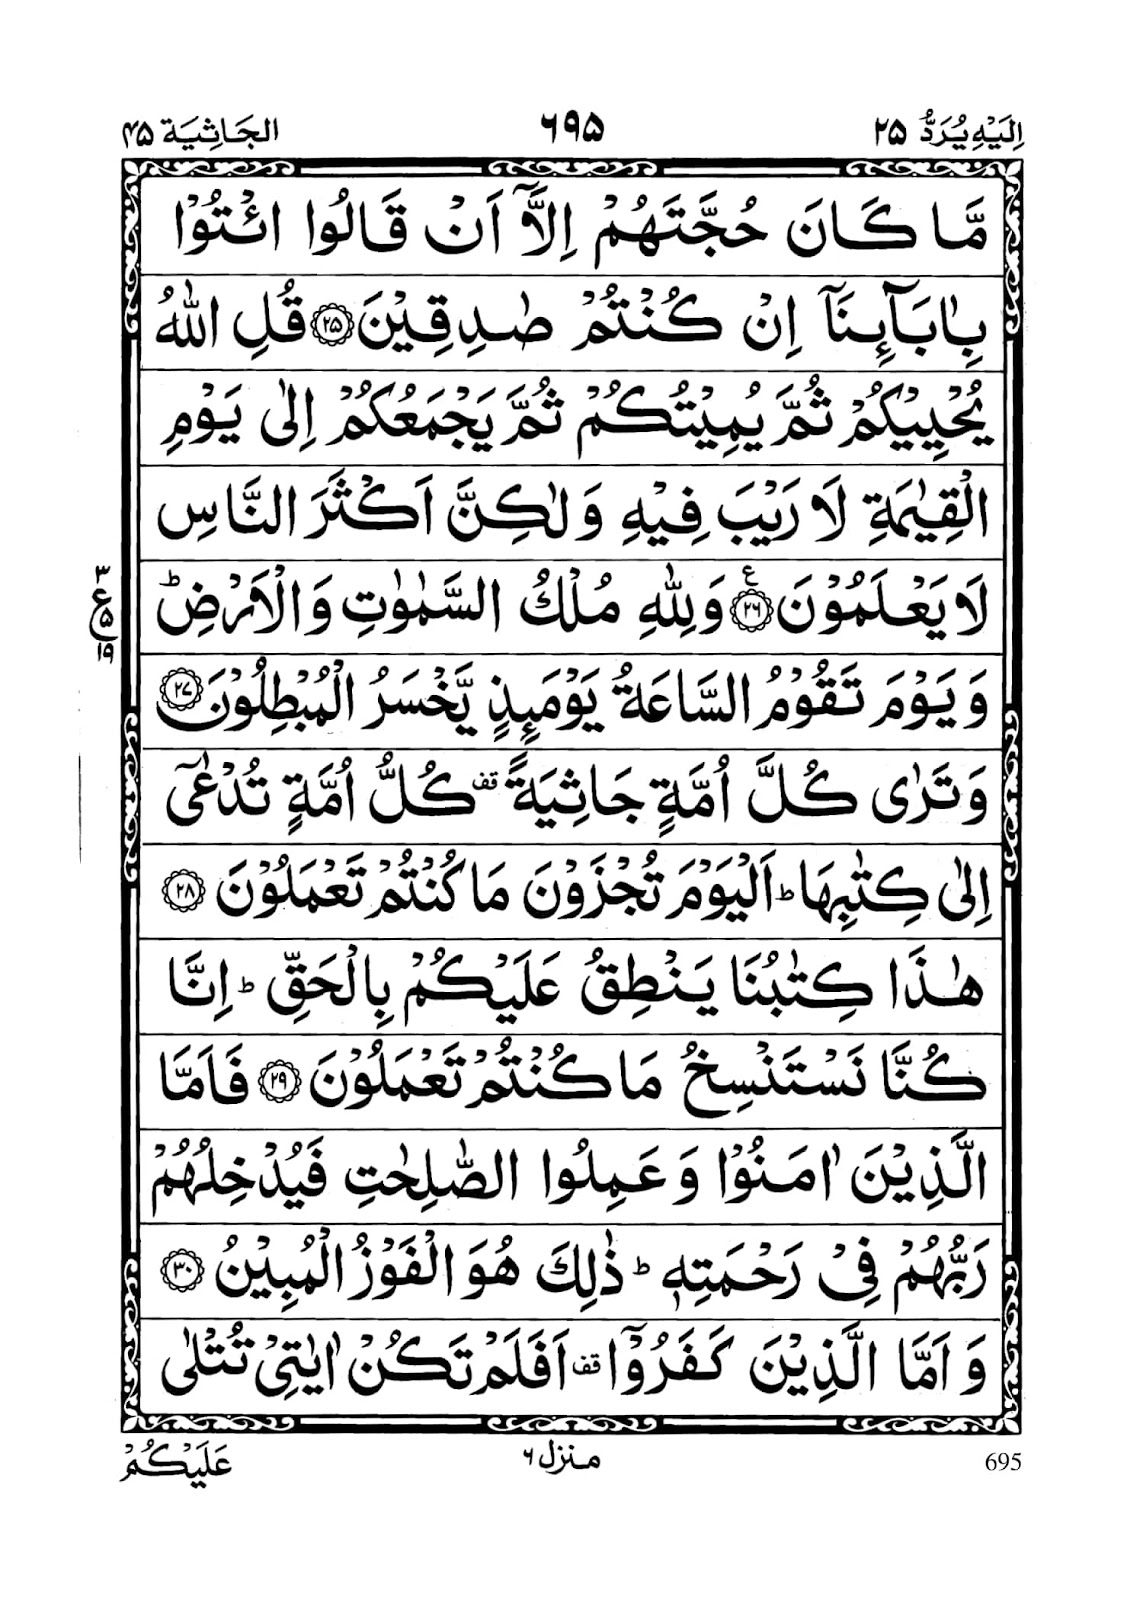 اِلَيْهِ يُرَدُّ ٢٥ ٦٩٥ الجَاثِيَة ٤٥
مَّا كَانَ حُجَّتَهُمْ اِلَّآ اَنْ قَالُوا ائْتُوْا
بِاٰبَآئِنَآ اِنْ كُنْتُمْ صٰدِقِيْنَ ۝٢٥ قُلِ اللّٰهُ
يُحْيِيْكُمْ ثُمَّ يُمِيْتُكُمْ ثُمَّ يَجْمَعُكُمْ اِلٰى يَوْمِ
الْقِيٰمَةِ لَا رَيْبَ فِيْهِ وَلٰكِنَّ اَكْثَرَ النَّاسِ
لَا يَعْلَمُوْنَ ۝٢٦ ع وَلِلّٰهِ مُلْكُ السَّمٰوٰتِ وَالْاَرْضِ ؕ
٣ ع ٥ ١٩
وَيَوْمَ تَقُوْمُ السَّاعَةُ يَوْمَئِذٍ يَّخْسَرُ الْمُبْطِلُوْنَ ۝٢٧
وَتَرٰى كُلَّ اُمَّةٍ جَاثِيَةً قف كُلُّ اُمَّةٍ تُدْعٰٓى
اِلٰى كِتٰبِهَا ؕ اَلْيَوْمَ تُجْزَوْنَ مَا كُنْتُمْ تَعْمَلُوْنَ ۝٢٨
هٰذَا كِتٰبُنَا يَنْطِقُ عَلَيْكُمْ بِالْحَقِّ ؕ اِنَّا
كُنَّا نَسْتَنْسِخُ مَا كُنْتُمْ تَعْمَلُوْنَ ۝٢٩ فَاَمَّا
الَّذِيْنَ اٰمَنُوْا وَعَمِلُوا الصّٰلِحٰتِ فَيُدْخِلُهُمْ
رَبُّهُمْ فِيْ رَحْمَتِهٖ ؕ ذٰلِكَ هُوَ الْفَوْزُ الْمُبِيْنُ ۝٣٠
وَاَمَّا الَّذِيْنَ كَفَرُوْٓا قف اَفَلَمْ تَكُنْ اٰيٰتِيْ تُتْلٰى
695 منزل ٦ عَلَيْكُمْ